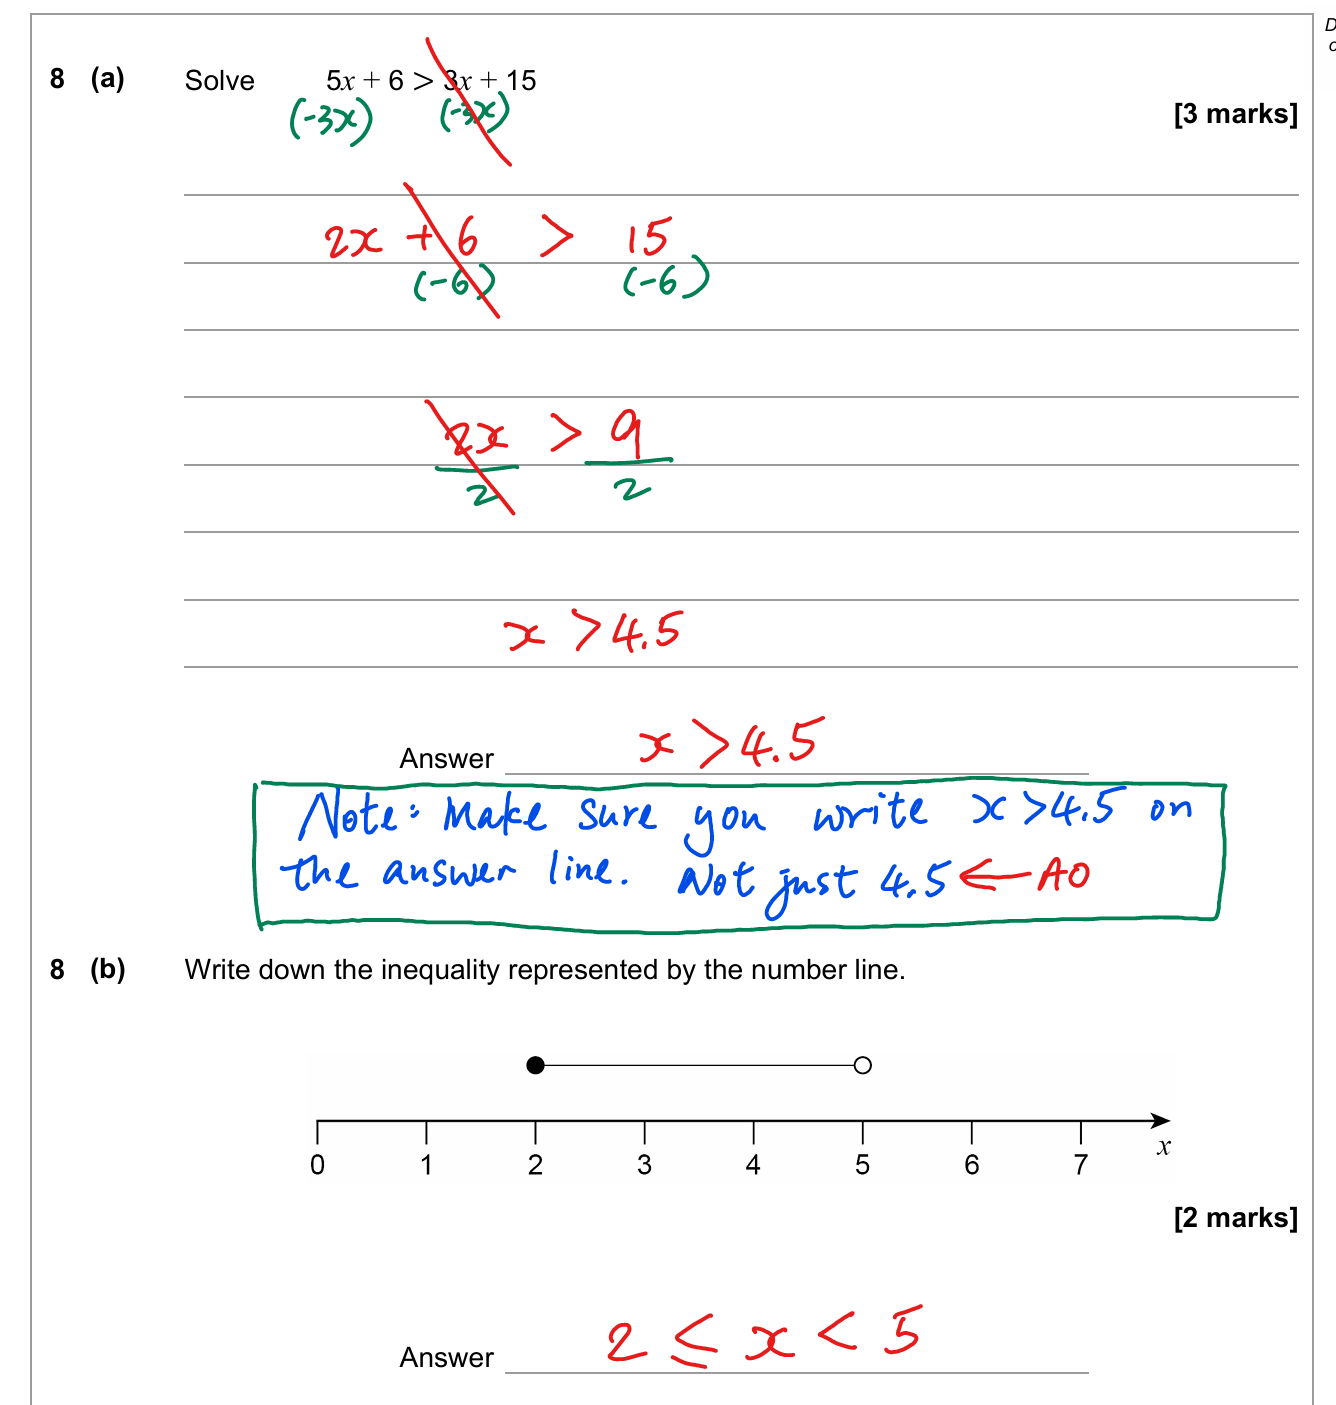 D
o
8 (a) Solve 5x + 6 > 3x + 15
(-3x) (-3x)
[3 marks]
2x + 6 > 15
(-6) (-6)
2x > 9
2 2
x > 4.5
Answer x > 4.5
Note: Make sure you write x > 4.5 on
the answer line. Not just 4.5 ← A0
8 (b) Write down the inequality represented by the number line.
0 1 2 3 4 5 6 7 x
[2 marks]
Answer 2 ≤ x < 5